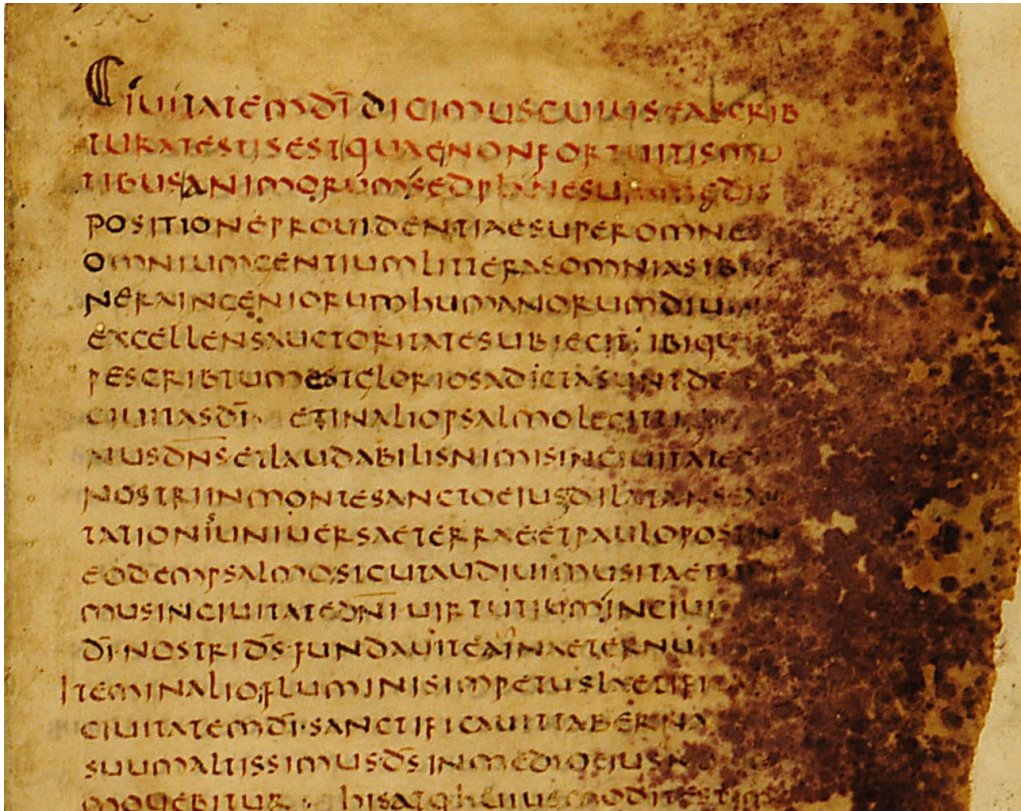 CIUITATEMDI DICIMUSCUIUSEASCRIB
TURATESTISESTQUAENONFORTUITISMO
TIBUSANIMORUMSEDPLANESUMMAEDIS
POSITIONEPROUIDENTIAESUPEROMNES
OMNIUMGENTIUMLITTERASOMNIASIBI
NERAINGENIORUMHUMANORUMDIUI
EXCELLENSAUCTORITATESUBIECIT; IBIQU
PESCRIBTUMESTGLORIOSADICTASUNTDE
CIUITASDI· ETINALIOPSALMOLEGITUR
NUSDNSETLAUDABILISNIMISINCIUITATED
NOSTRIINMONTESANCTOEIUSDILATANSEX
TATIONISUNIUERSAETERRAE·ETPAULOPOSTIN
EODEMPSALMO·SICUTAUDIUIMUSITAETUIDI
MUSINCIUITATEDNIUIRTUTIUMINCIUI
DI·NOSTRIDS·FUNDAUITEAINAETERNUM
ITEMINALIO·FLUMINISIMPETUSLAETIFICA
CIUITATEMDI·SANCTIFICAUITTABERNA
SUUMALTISSIMUSDSINMEDIOEIUSN
MOUEBITUR· HISATQHUIUSMODITESTIM